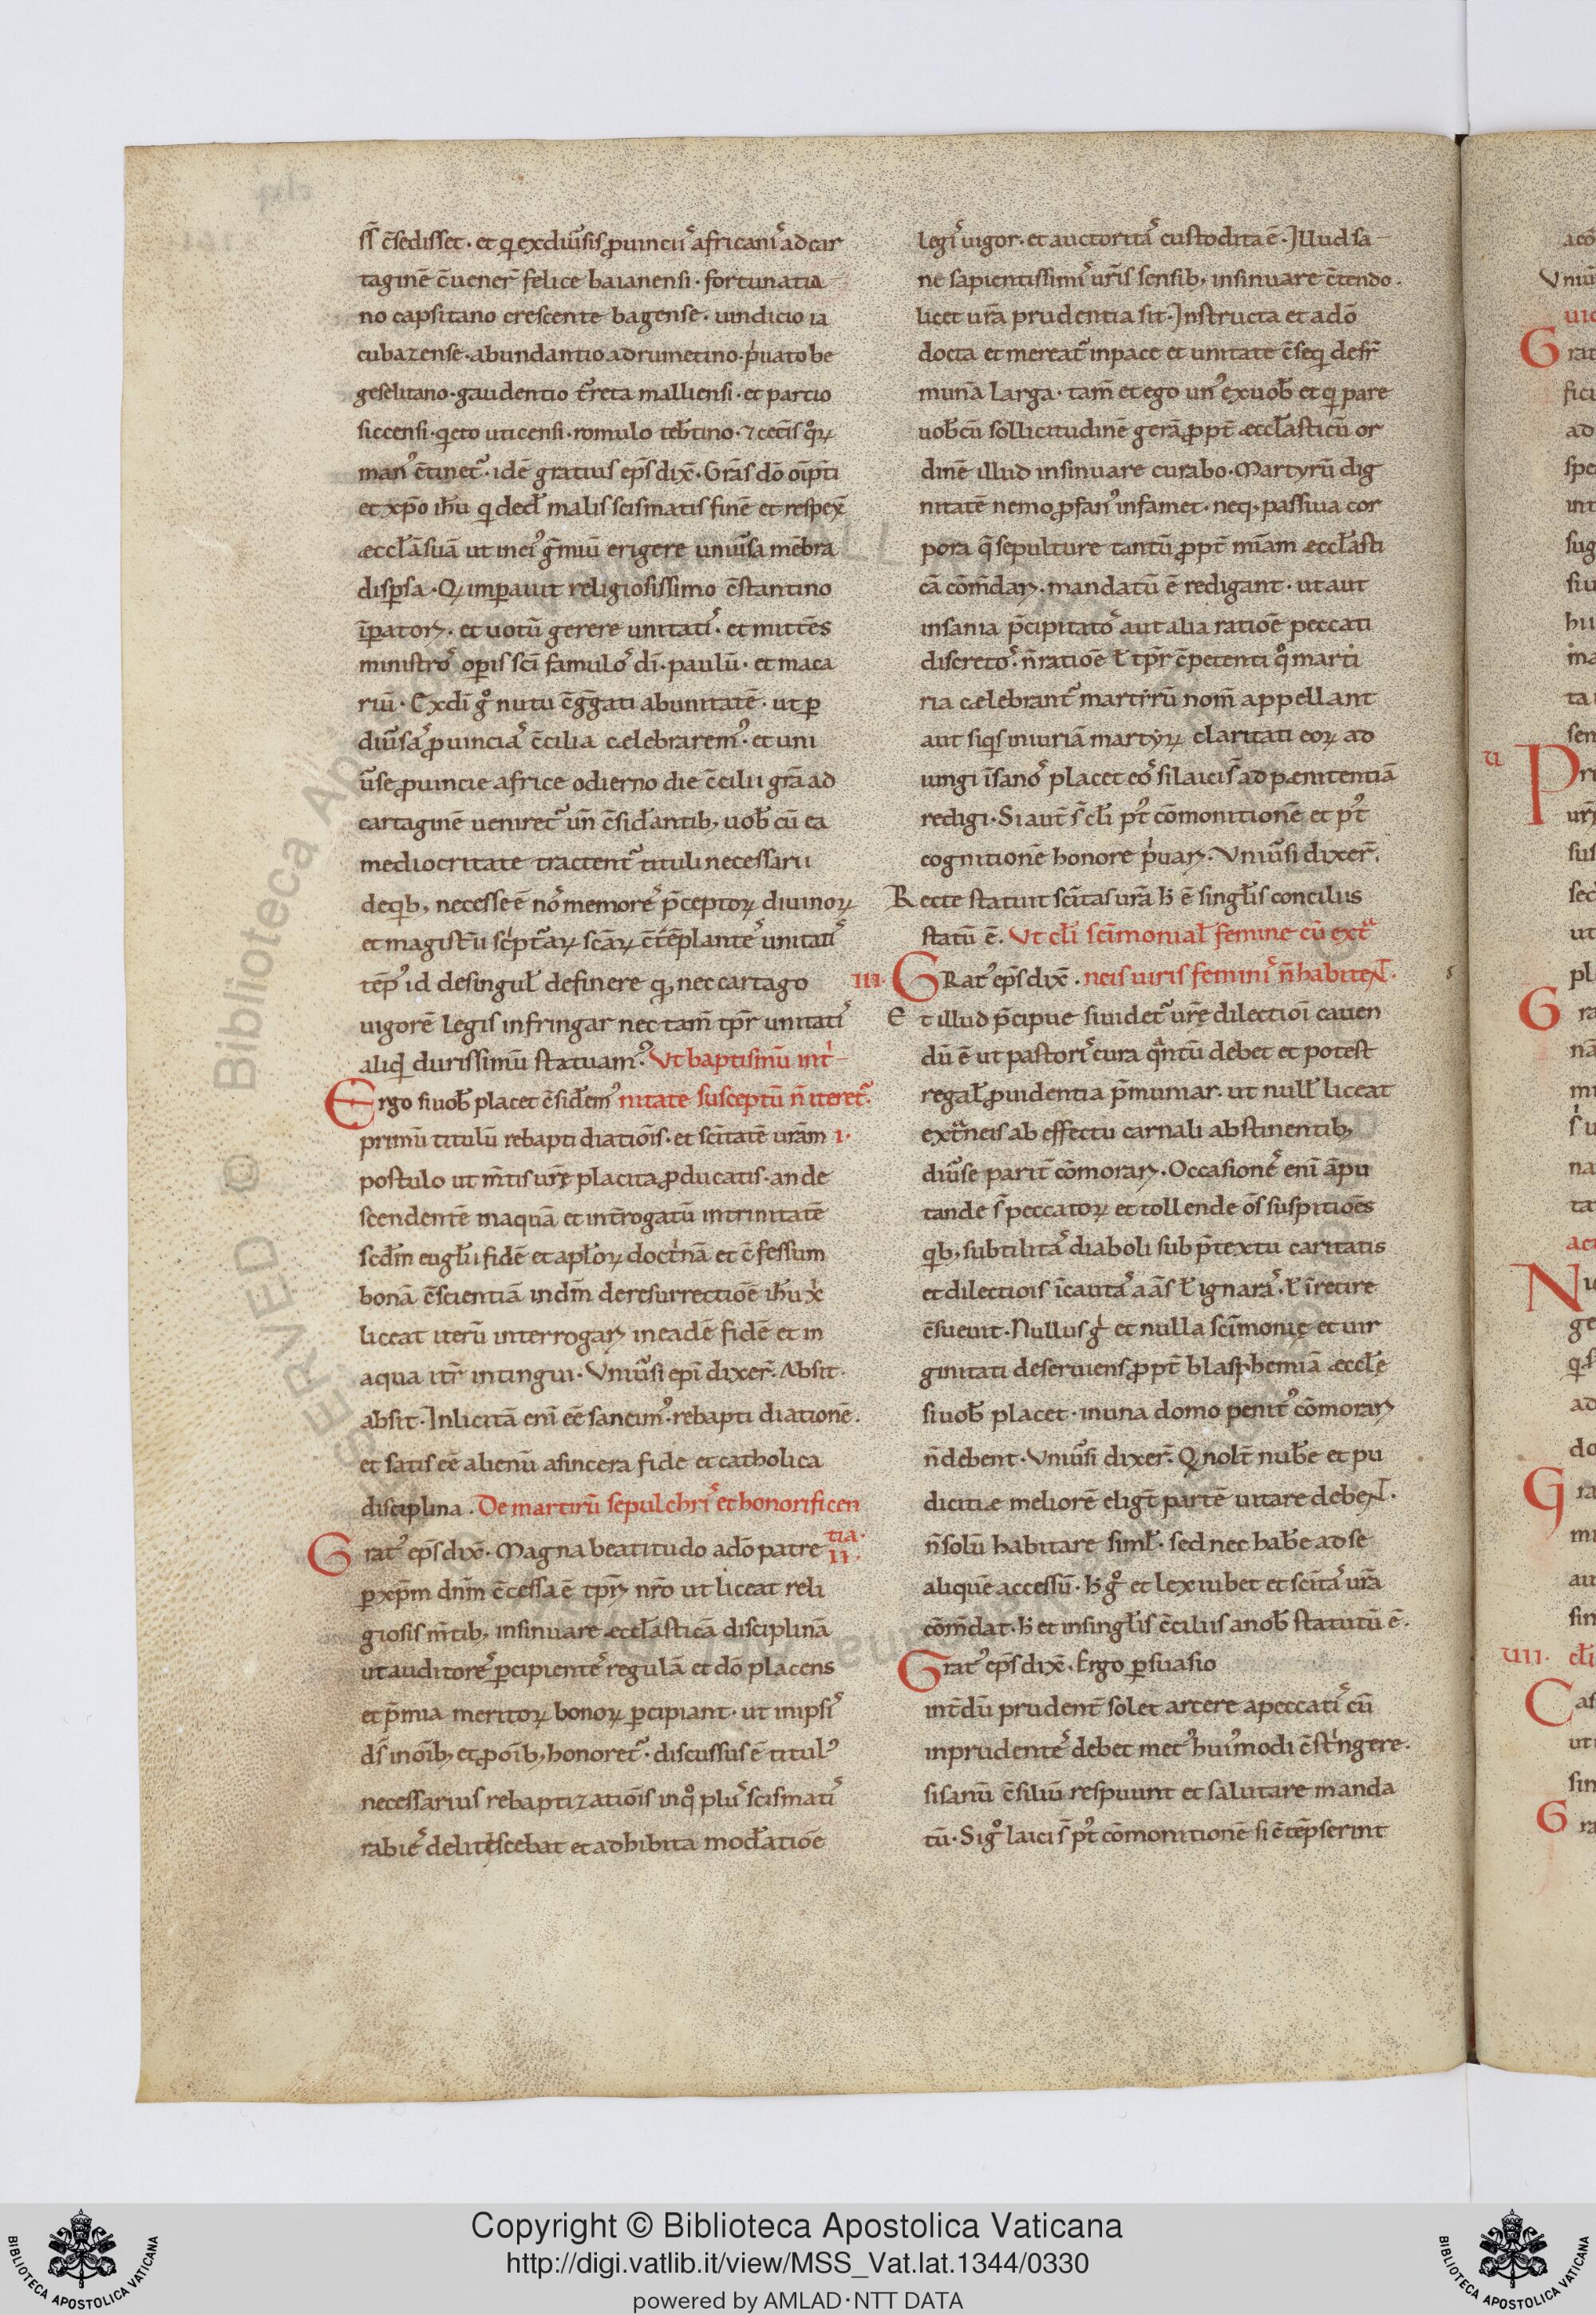 ss̄ c̄sedisset · et q exdiūsis ꝓuinciis africanis ad car
taginē c̄uener̄ felice baianensi · fortunatia
no capsitano crescente bagense · uindicio ia
cubazense · abundantio adrumetino · p̓uato be
geselitano · gaudentio
malliensi · et partio
siccensi · q̄eto uticensi · romulo teb̄tino · ⁊ cet̄is qͦꝝ
man᾿ c̄tinet᷑ · idē gratius ep̄s dix̄ · Grās dō oīpt̄i
et xp̄o ih̄u q ded̄ malis scismatis finē et respex̄
æccl̄ā suā ut in ei᾿ ḡmiū erigere uniūsa mēbra
disꝑsa · Q imꝑauit religiosissimo c̄stantino
īꝑatoꝝ · et uotū gerere unitatis · et mittēs
ministros oꝑis sc̄i famulos dī · paulū · et maca
riū · Ex dī gͦ nutu c̄ḡgati ab unitatē · ut ꝑ
diūsas ꝓuincias c̄cilia cælebrarem᾿ · et uni
ūse ꝓuincie africe odierno die c̄cilii grā ad
cartaginē ueniret᷑ un̄ c̄sid̄antib; uob̄ cū ea
mediocritate tractent᷑ tituli necessarii
de qb; necesse ē nos memores p̄ceptoꝝ diuinoꝝ
et magistr̄ū scp̓t᷑aꝝ sc̄aꝝ c̄tēplantes unitatis
tēp᾿ id de singul̄ definere q nec cartago
uigorē legis infringar nec tam̄ tp̄r unitatis
aliqd durissimū statuam᾿. Ut baptismū int̓
Ergo si uob̄ placet c̄sid̄em᾿ nitate susceptū n̄ iteret᷑.
primū titulū rebapti diatiōis · et sc̄itatē urām 1·
postulo ut m̄tis ur̄ę placita ꝓducatis · an de
scendentē in aquā et int̄rogatū in trinitatē
scd̄m eugl̄ii fidē et apl̄oꝝ doct̓nā et c̄fessum
bonā c̄scientiā in dm̄ de resurrectiōe ih̄u x̄
liceat iterū interrogaꝝ in eadē fidē et in
aqua itr̄ intingui · Vniūsi epī dixer̄. Absit
absit · Inlicitā enī eē sancim᾿ · rebapti diationē.
et satis eē alienū a sincera fide et catholica
disciplina. De martirū sepulchris et honorificen
tia. 11.
Grat᾿ ep̄s dix̄ · Magna beatitudo a dō patre
ꝑ xp̄m dn̄m c̄cessa ē tp̄rꝝ nr̄o ut liceat reli
giosis m̄tib; insinuare æccl̄asticā disciplinā
ut auditores ꝑcipientes regulā et dō placens
et p̄mia meritoꝝ bonoꝝ ꝑcipiant · ut in ipsis
ds̄ in oīb; et ꝓ oīb; honoret᷑ · discussus ē titul᾿
necessarius rebaptizatiōis in qͦ plus scismatis
rabies delitescebat et adhibita mod̄atiōe
legis uigor · et auctoritas custodita ē · Illud sa
ne sapientissimis ur̄is sensib; insinuare c̄tendo.
licet ur̄a prudentia sit · Instructa et a dō
docta et mereat᷑ in pace et unitate c̄seq de fr̄
munā larga · tam̄ et ego un᾿ ex uob̄ et q pare
uob̄ cū sollicitudinē gerā ꝓpt̄ æccl̄asticū or
dinē illud insinuare curabo · Martyrū dig
nitatē nemo ꝓfan᾿ infamet · neq; passiua cor
pora q̄ sepulture tantū ꝓpt̄ mīam æccl̄asti
cā cōm̄daꝝ · mandatū ē redigant · ut aut
insania p̄cipitatos aut alia ratiōe peccati
discretos · n̄ ratiōe ł tp̄r c̄petenti qͦ marti
ria cælebrant᷑ martirū nom̄ appellant
aut siqs iniuriā martyꝝ claritati eoꝝ ad
iungi īsanos placet eos si laici s̄ ad pænitentiā
redigi · Si aut̄ s̄ cl̄i p᾿t cōmonitionē et p᾿t
cognitionē honore p̓uaꝝ · Vniūsi dixer̄.
Recte statuit sc̄itas ur̄a h̄ ē singl̄is conciliis
statū ē. Ut cl̄i sc̄imonial̄ femine cū ext᷑a
111· GRat᾿ ep̄s dix̄ · neis uiris feminis n̄ habitent.
Et illud p̄cipue suudet᷑ ur̄ę dilectiōi cauen
dū ē ut pastoris cura q̄ntū debet et potest
regal̄ ꝓuidentia p̄muniar · ut null̄ liceat
ext᷑neis ab effectu carnali abstinentib;
diūse parit̄ cōmoraꝝ · Occasiones enī āpu
tande s̄ peccatoꝝ et tollende ōs suspitiōes
qb; subtilitas diaboli sub p̄textu caritatis
et dilectiois īcautas aās ł ignaras · ł īretire
c̄sueuit · Nullus g̓ et nulla sc̄imonię et uir
ginitati deseruiens ꝓpt̄ blasphemiā æccl̄ę
si uob̄ placet · in una domo penit᾿ cōmoraꝝ
n̄ debent · Vniūsi dixer̄ · Q nolt̄ nub̄e et pu
diciti æ meliorē eligt̄ partē uitare debent.
n̄ solū habitare siml̄ · sed nec hab̄e ad se
aliquē accessū · h̄ gͦ et lex iubet et sc̄itas ur̄a
cōm̄dat · h̄ et in singl̄is c̄ciliis a nob̄ statutū ē.
Grat᾿ ep̄s dix̄ · Ergo ꝑsuasio
int̄dū prudent̄ solet arcere a peccatis cū
inprudentes debet met᾿ hui᾿modi c̄st̓ngere.
si sanū c̄siliū respuunt et salutare manda
tū · Si gͦ laici s̄ p᾿t cōmonitionē si c̄tēpserint
Copyright © Biblioteca Apostolica Vaticana
http://digi.vatlib.it/view/MSS_Vat.lat.1344/0330
powered by AMLAD·NTT DATA
BIBLIOTECA APOSTOLICA VATICANA
BIBLIOTECA APOSTOLICA VATICANA